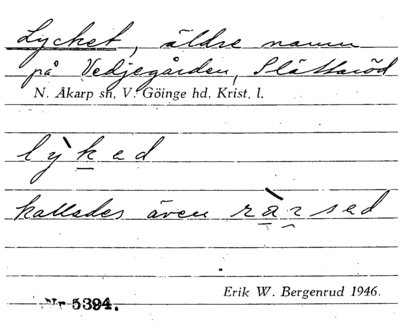 Lycket, äldre namn
på Vedjegården, Slättaröd
N. Åkarp sn, V. Göinge hd, Krist. l.
lỳked
kallades även rà̱rsed
Erik W. Bergenrud 1946.
Nr 5394.